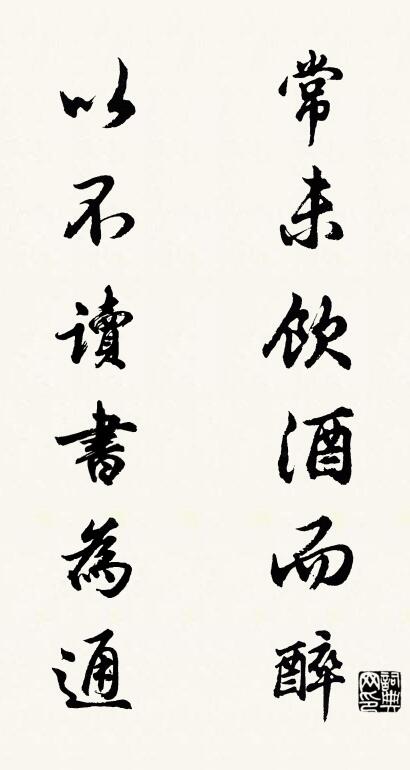 常未飲酒而醉
以不讀書為通
詞典网印